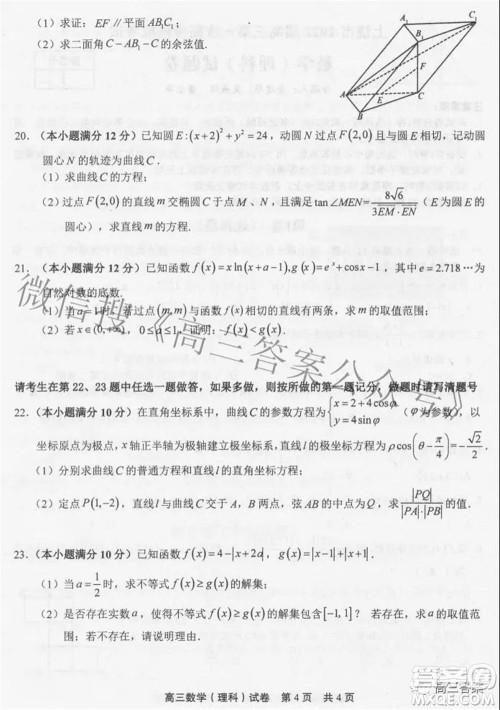 （1）求证：EF∥平面AB₁C₁；
（2）求二面角C－AB₁－C的余弦值.
A₁
C₁
B₁
F
A
E
C
B
20.（本小题满分 12 分）已知圆E:(x+2)²+y²=24，动圆N过点F(2,0)且与圆E相切，记动圆
圆心N的轨迹为曲线C.
（1）求曲线C的方程；
（2）过点F(2,0)的直线m交曲线C于点M,N，且满足tan∠MEN=8√6/(3EM·EN)（E为圆E的
圆心），求直线m的方程.
21.（本小题满分 12 分）已知函数f(x)=xln(x+a-1),g(x)=eˣ+cosx-1，其中e=2.718…为
自然对数的底数.
（1）当a=1时，若过点(m,m)与函数f(x)相切的直线有两条，求m的取值范围；
（2）若x∈(0,+∞)，0≤a≤1，证明：f(x)<g(x).
请考生在第 22、23 题中任选一题做答，如果多做，则按所做的第一题记分，做题时请写清题号
22.（本小题满分 10 分）在直角坐标系中，曲线C的参数方程为{x=2+4cosφ y=4sinφ（φ为参数），以
坐标原点为极点，x轴正半轴为极轴建立极坐标系，直线l的极坐标方程为ρcos(θ-π/4)=-√2/2.
（1）分别求曲线C的普通方程和直线l的直角坐标方程；
（2）定点P(1,-2)，直线l与曲线C交于A、B两点，弦AB的中点为Q，求|PQ|/(|PA|·|PB|)的值.
23.（本小题满分 10 分）已知函数f(x)=4-|x+2a|，g(x)=|x-1|+|x+1|.
（1）当a=1/2时，求不等式f(x)≥g(x)的解集；
（2）是否存在实数a，使得不等式f(x)≥g(x)的解集包含[-1,1]？若存在，求a的取值范
围；若不存在，请说明理由.
高三数学（理科）试卷 第 4 页 共 4 页
微信搜《高三答案公众号》
高三答案